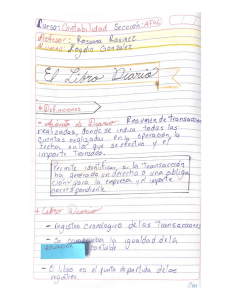 Curso: Contabilidad Sección: AFU2
Profesor: Rossana Ramirez
Alumno: Rogelio Gonzalez
El Libro Diario
* Definiciones
- Asiento de Diario: Resumen de transacciones
realizadas, donde se indica todas las
cuentas realizadas en la operación, la
fecha, en la que se efectuo y el
importe Transado.
Permite identificar, si la Transacción
ha generado un derecho o una obliga
ción para la empresa y el importe
correspondiente.
* Libro Diario
- registro cronologico de las Transacciones
- Se comprueba la igualdad de la
ecuación contable
- El libro es el punto de partida de los
registros.